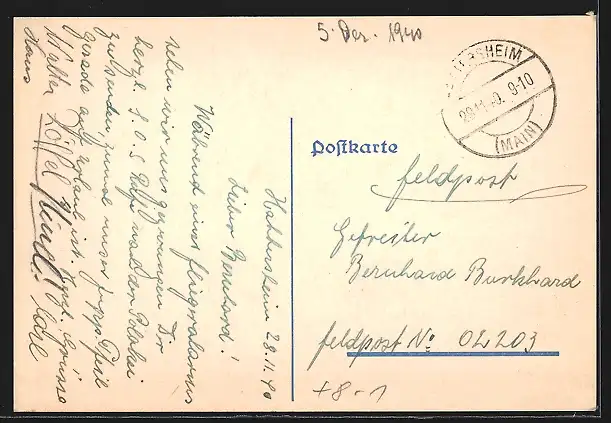 5. Dez. 1940
HATTERSHEIM
28.11.40. 9-10
(MAIN)
Postkarte
Feldpost
Gefreiter
Bernhard Burkhard
Feldpost No 02203
+8-1
Hattersheim 28.11.40
Lieber Bernhard!
Während eines Fliegeralarms
sehen wir uns gezwungen Dir
herzl. S.O.S Rufe nach der
zuzusenden, zumal unser
gerade auf Urlaub ist. Grüsse
Walter Löffel
Hans